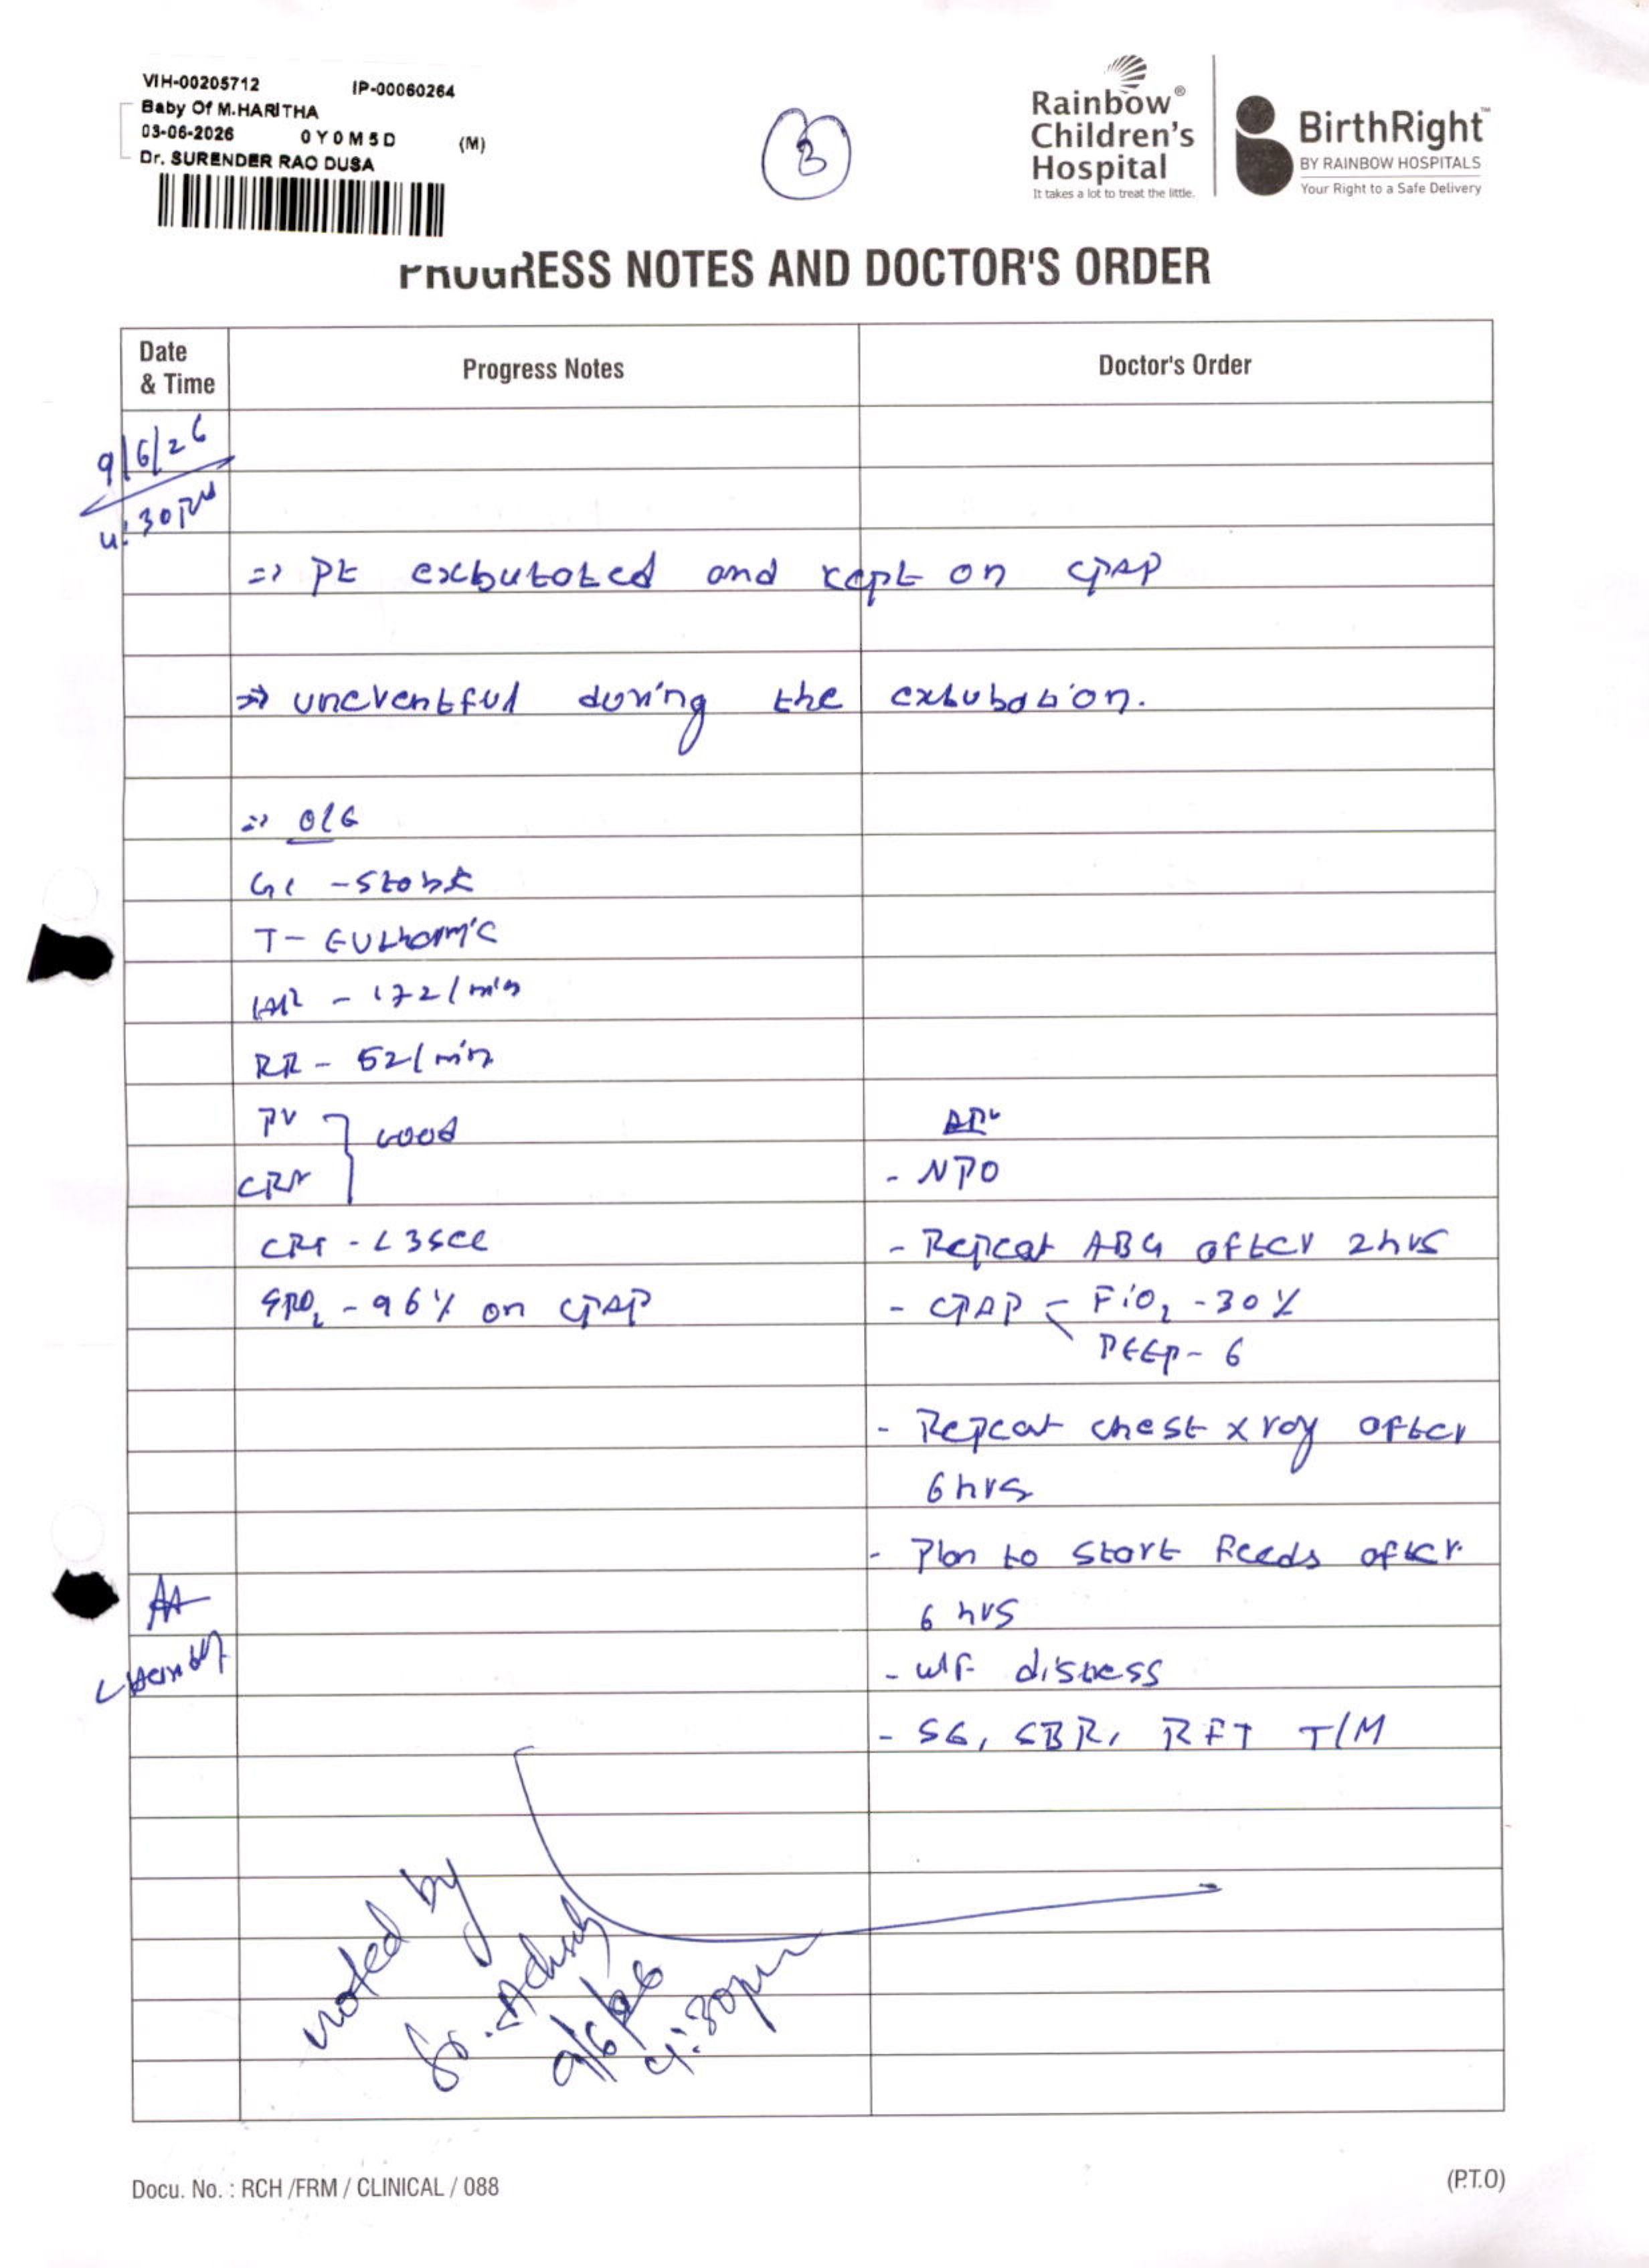 VIH-00205712 IP-00060264
Baby Of M.HARITHA
03-06-2026 0Y0M5D (M)
Dr. SURENDER RAO DUSA
3
Rainbow® Children's Hospital
It takes a lot to treat the little.
BirthRight™
BY RAINBOW HOSPITALS
Your Right to a Safe Delivery
PROGRESS NOTES AND DOCTOR'S ORDER
Date & Time Progress Notes Doctor's Order
9/6/26
4:30PM
=> Pt exbutated and kept on CPAP
=> uneventful during the extubation.
=> O/E
GC - Stable
T - Euthermic
HR - 172/min
RR - 52/min
PV } Good
CRT - <3sec
SPO2 - 96% on CPAP
- NPO
- Repeat ABG after 2hrs
- CPAP - FiO2 - 30%
PEEP - 6
- Repeat chest xray after
6hrs
- Plan to start feeds after
6 hrs
- w/f distress
- SE, SBR, RFT T/M
noted by
Sr.
9/6/26
4:30pm
Docu. No. : RCH /FRM / CLINICAL / 088
(P.T.O)